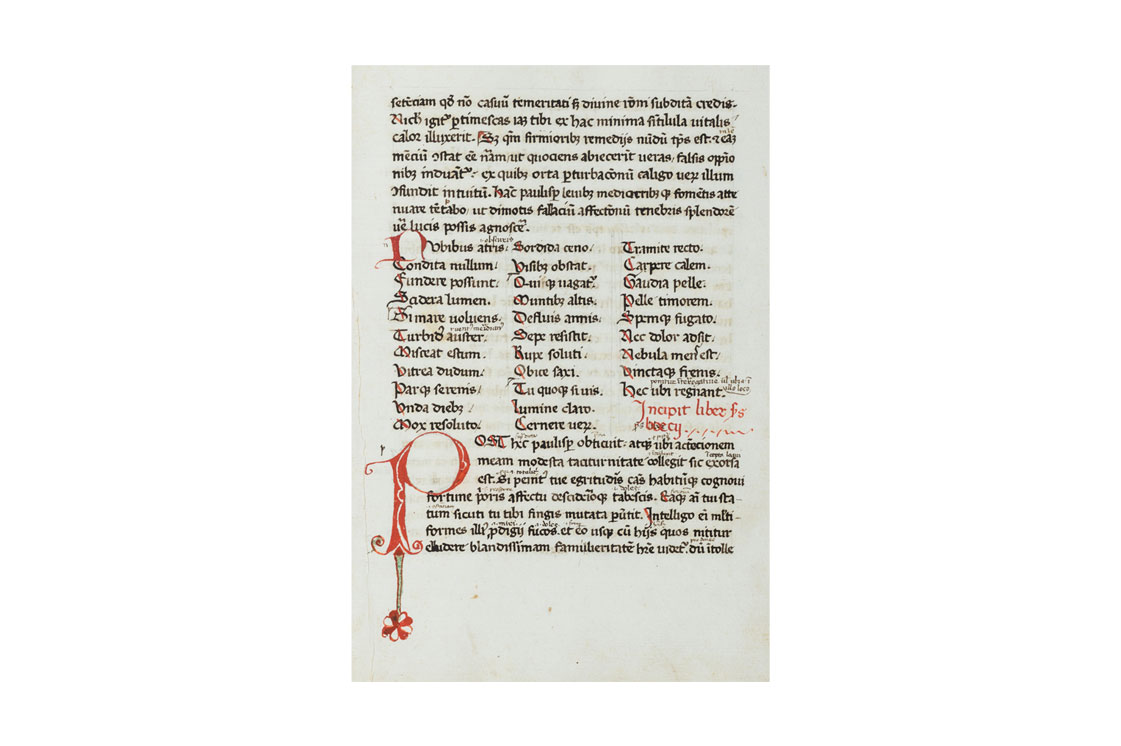 setēciam qđ nō casuū temeritati sꝫ divine rōni subditā credis.
Nich igiť ꝑtimescas iaꝫ tibi ex hac minima sītilula vitalis
calor illuxerit. Sꝫ qm̄ firmioribꝫ remedijs nūdū tp̄s est. ⁊ eaꝫ
mēciū ꝯstat eē nāꝫ ut quociens abiecerit veras, falsis oppīo
nibꝫ induāť. ex quibꝫ orta ꝑturbacōnū caligo veꝝ illum
ꝯfundit intuitū. hāc paulisꝑ leuibꝫ mediocribꝫqꝫ fomētis atte
nuare tēptabo, ut dimotis fallaciū affectōnū tenebris splendorē
vē lucis possis agnoscē.
obscuris
Nvbibus atris.
Condita nullum.
Fundere possunt.
Sidera lumen.
Si mare voluens.
Turbidꝰ auster.
Misceat estum.
Vitrea dudum.
Parqꝫ serenis.
Vnda diebꝫ.
Mox resoluto.
Sordida ceno.
Visibꝫ obstat.
Quiqꝫ vagať.
Montibꝫ altis.
Defluis amnis.
Sepe resistit.
Rupe soluti.
Obice saxi.
Tu quoqꝫ si vis.
Lumine claro.
Cernere veꝝ.
Tramite recto.
Carpere calem.
Gaudia pelle.
Pelle timorem.
Spemqꝫ fugato.
Nec dolor adsit.
Nebula mens est.
Vinctaqꝫ frenis.
Hec ubi regnant.
Incipit liber sꝰs
boecij.
POST hec paulisꝑ obticuit. atqꝫ ubi actēcionem
meam modesta taciturnitate collegit sic exorsa
est. Si penitꝰ tue egritudīs cās habitūqꝫ cognoui
fortune pōris affectu desidēioqꝫ tabescis. Eaqꝫ aī tui sta-
tum sicuti tu tibi fingis mutata ꝑūtit. Intelligo eī mlti
formes illiꝰ prodigij fucos. et eo usqꝫ cū hijs quos nititur
eludere blandissimam familieritatē hr̄e videť. dū ītolle